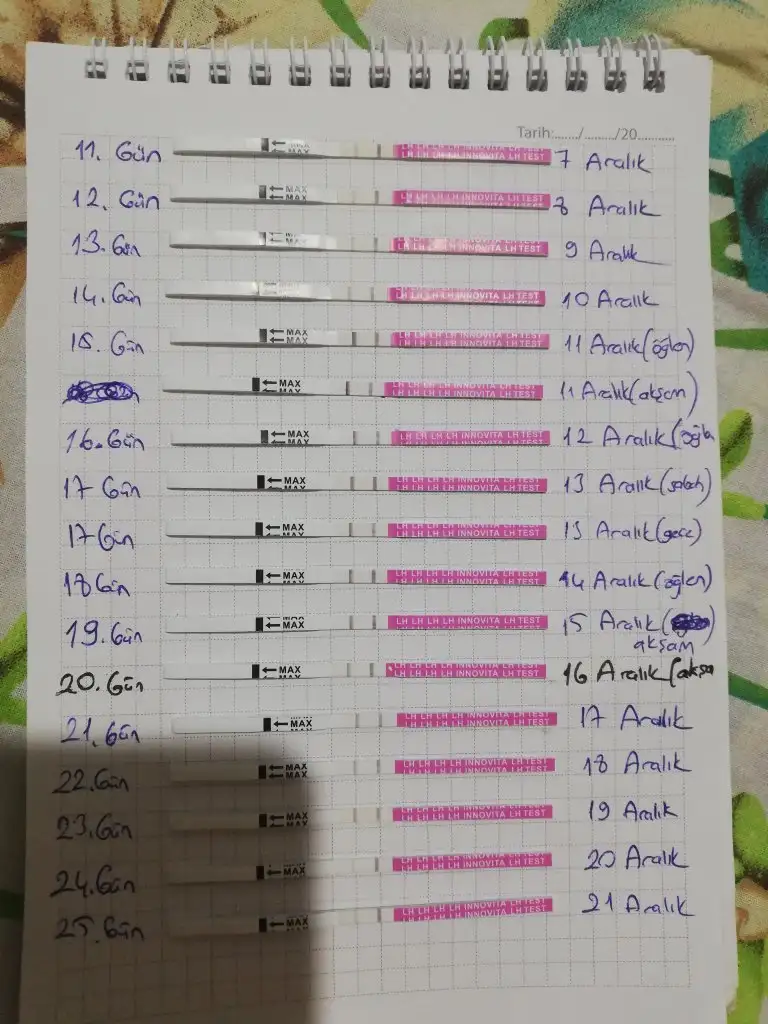 Tarih:....../......../20...........
11. Gün ← MAX LH LH LH LH INNOVITA LH TEST 7 Aralık
12. Gün ← MAX LH LH LH LH INNOVITA LH TEST 8 Aralık
13. Gün LH LH LH LH INNOVITA LH TEST 9 Aralık
14. Gün LH LH LH LH INNOVITA LH TEST 10 Aralık
15. Gün ← MAX LH LH LH LH INNOVITA LH TEST 11 Aralık (öğlen)
← MAX LH LH LH LH INNOVITA LH TEST 11 Aralık (akşam)
16. Gün ← MAX LH LH LH LH INNOVITA LH TEST 12 Aralık
17 Gün ← MAX LH LH LH LH INNOVITA LH TEST 13 Aralık (sabah)
17 Gün ← MAX LH LH LH LH INNOVITA LH TEST 13 Aralık (gece)
18 Gün ← MAX LH LH LH LH INNOVITA LH TEST 14 Aralık (öğlen)
19. Gün ← MAX LH LH LH LH INNOVITA LH TEST 15 Aralık (
akşam
20. Gün ← MAX LH LH LH LH INNOVITA LH TEST 16 Aralık (akşa
21. Gün ← MAX LH LH LH LH INNOVITA LH TEST 17 Aralık
22. Gün ← MAX LH LH LH LH INNOVITA LH TEST 18 Aralık
23. Gün ← MAX LH LH LH LH INNOVITA LH TEST 19 Aralık
24. Gün ← MAX LH LH LH LH INNOVITA LH TEST 20 Aralık
25. Gün ← MAX LH LH LH LH INNOVITA LH TEST 21 Aralık